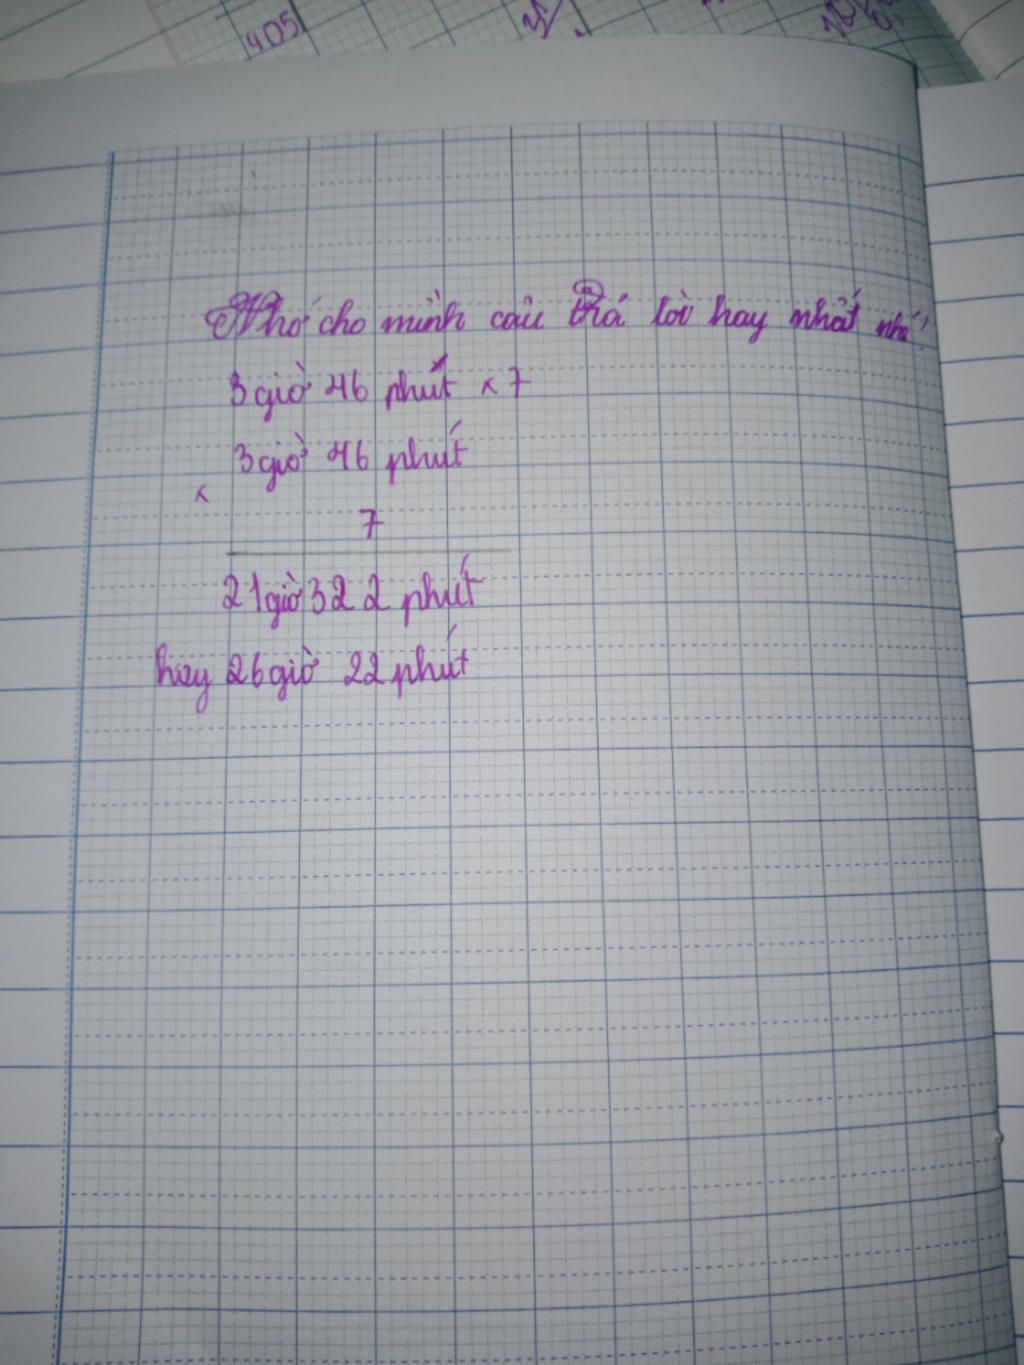 405
Nhớ cho mình câu trả lời hay nhất nhé!
3 giờ 46 phút x 7
3 giờ 46 phút
x
7
21 giờ 322 phút
hay 26 giờ 22 phút